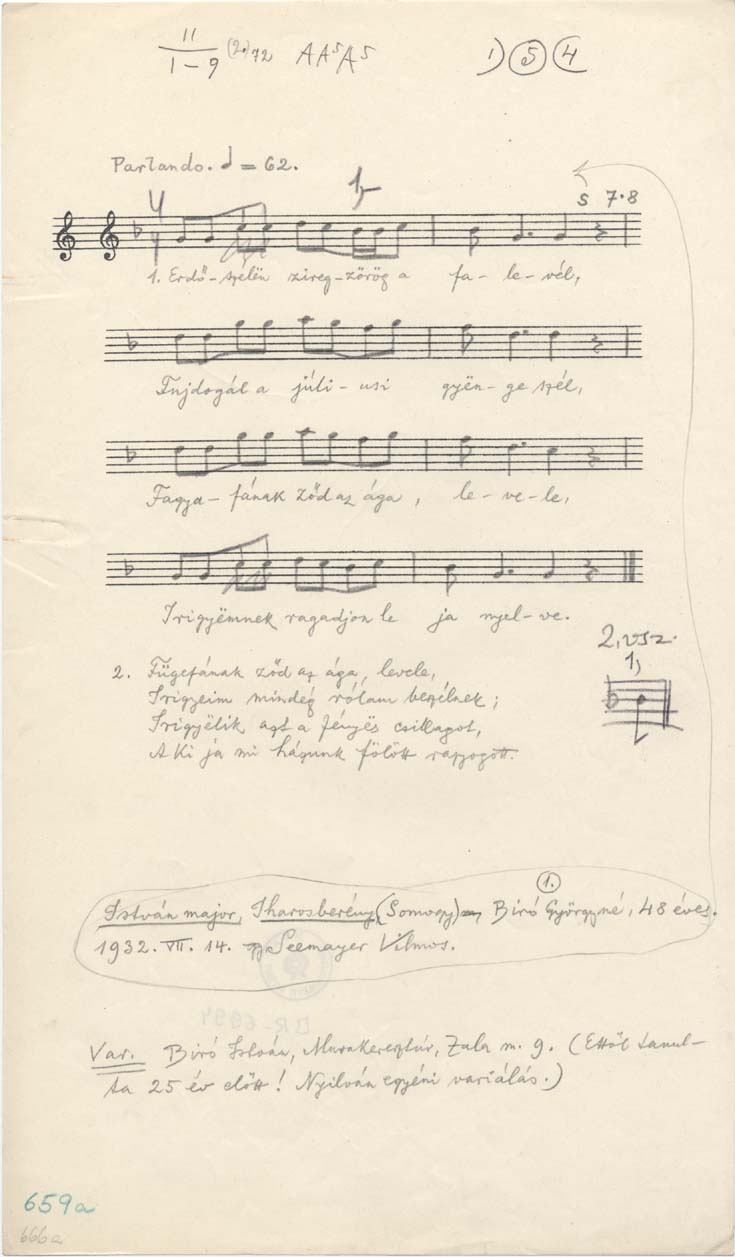 11
1-9 (2.) 72 AA⁵A⁵ 1) 5 4
Parlando. = 62.
1,
s 7·8
1. Erdő-szélën zireg-zörög a fa-le-vél,
Fujdogál a júli-usi gyën-ge szél,
Fagya-fának ződ az ága, le-ve-le,
Irigyëmnek ragadjon le ja nyel-ve.
2, vsz.
1,
2. Fügefának ződ az ága, levele,
Irigyeim mindég rólam beszélnek;
Irigyëlik azt a fényës csillagot,
A ki ja mi házunk fölött ragyogott.
1.
István major, Iharosberény (Somogy) Biró Györgyné, 48 éves.
1932. VII. 14. Seemayer Vilmos.
BR-6994
Var. Biró István, Murakeresztúr, Zala m. 9. (Ettől tanul-
ta 25 év előtt! Nyilván egyéni variálás.)
659a
666a